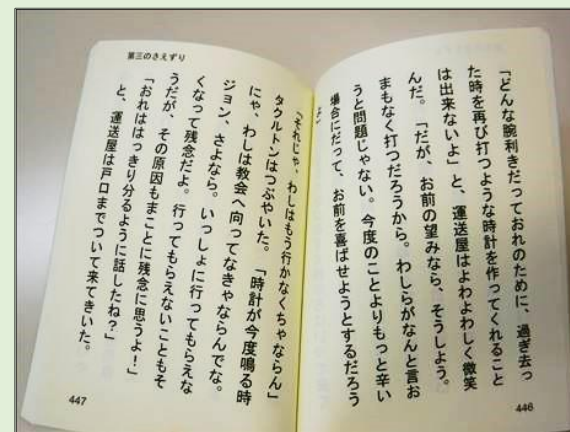 「どんな腕利きだっておれのために、過ぎ去っ
た時を再び打つような時計を作ってくれること
は出来ないよ」と、運送屋はよわよわしく微笑
んだ。「だが、お前の望みなら、そうしよう。
まもなく打つだろうから。わしらがなんと言お
うと問題じゃない。今度のことよりもっと辛い
場合にだって、お前を喜ばせようとするだろう
446
第三のさえずり
「それじゃ、わしはもう行かなくちゃならん」
タクルトンはつぶやいた。「時計が今度鳴る時
にゃ、わしは教会へ向ってなきゃならんでな。
ジョン、さよなら。いっしょに行ってもらえな
くなって残念だよ。行ってもらえないこともそ
うだが、その原因もまことに残念に思うよ！」
「おれははっきり分るように話したね？」
と、運送屋は戸口までついて来てきいた。
447